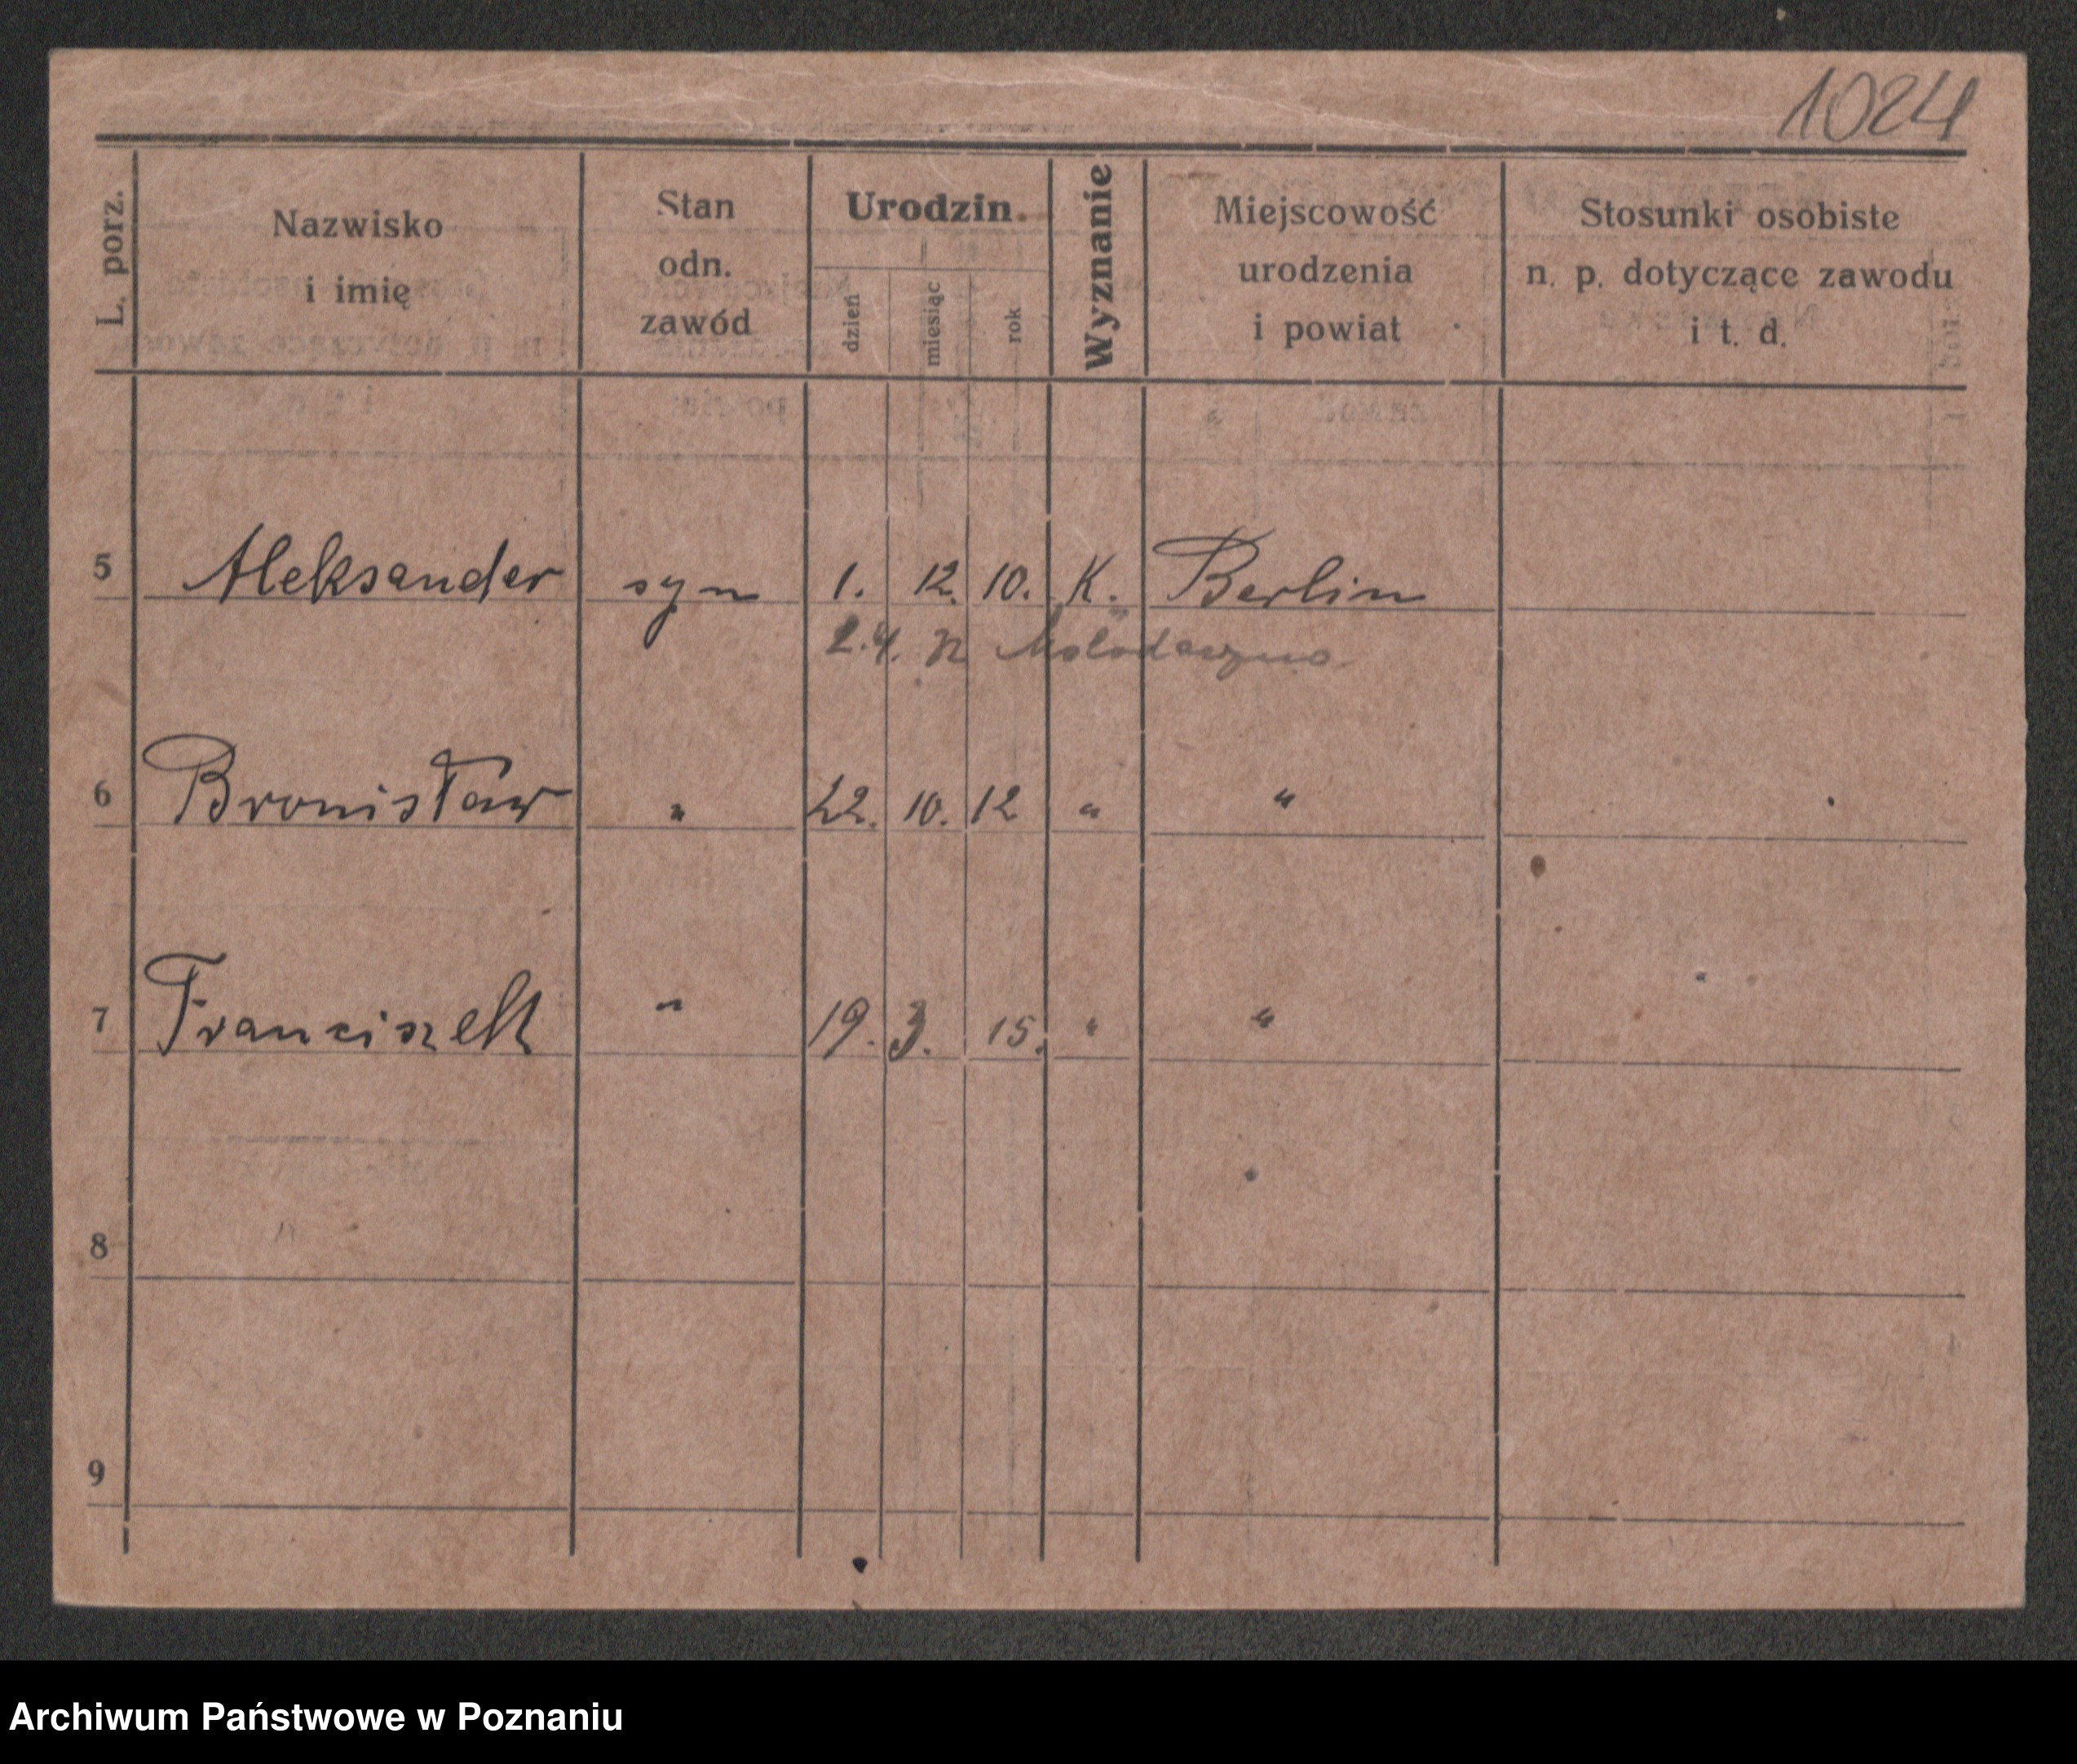 1024
L. porz. Nazwisko i imię Stan odn. zawód Urodzin. dzień miesiąc rok Wyznanie Miejscowość urodzenia i powiat Stosunki osobiste n. p. dotyczące zawodu i t. d.
5 Aleksander syn 1. 12. 10. K. Berlin
2.4. Mołodeczno
6 Bronisław " 22. 10. 12 " "
7 Franciszek " 19. 3. 15. " "
8
9
Archiwum Państwowe w Poznaniu